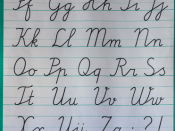 Ff Gg Hh Ii Jj
Kk Ll Mm Nn
Oo Pp Qq Rr Ss
Tt Uu Vv Ww
Xx Yy Zz . ? !